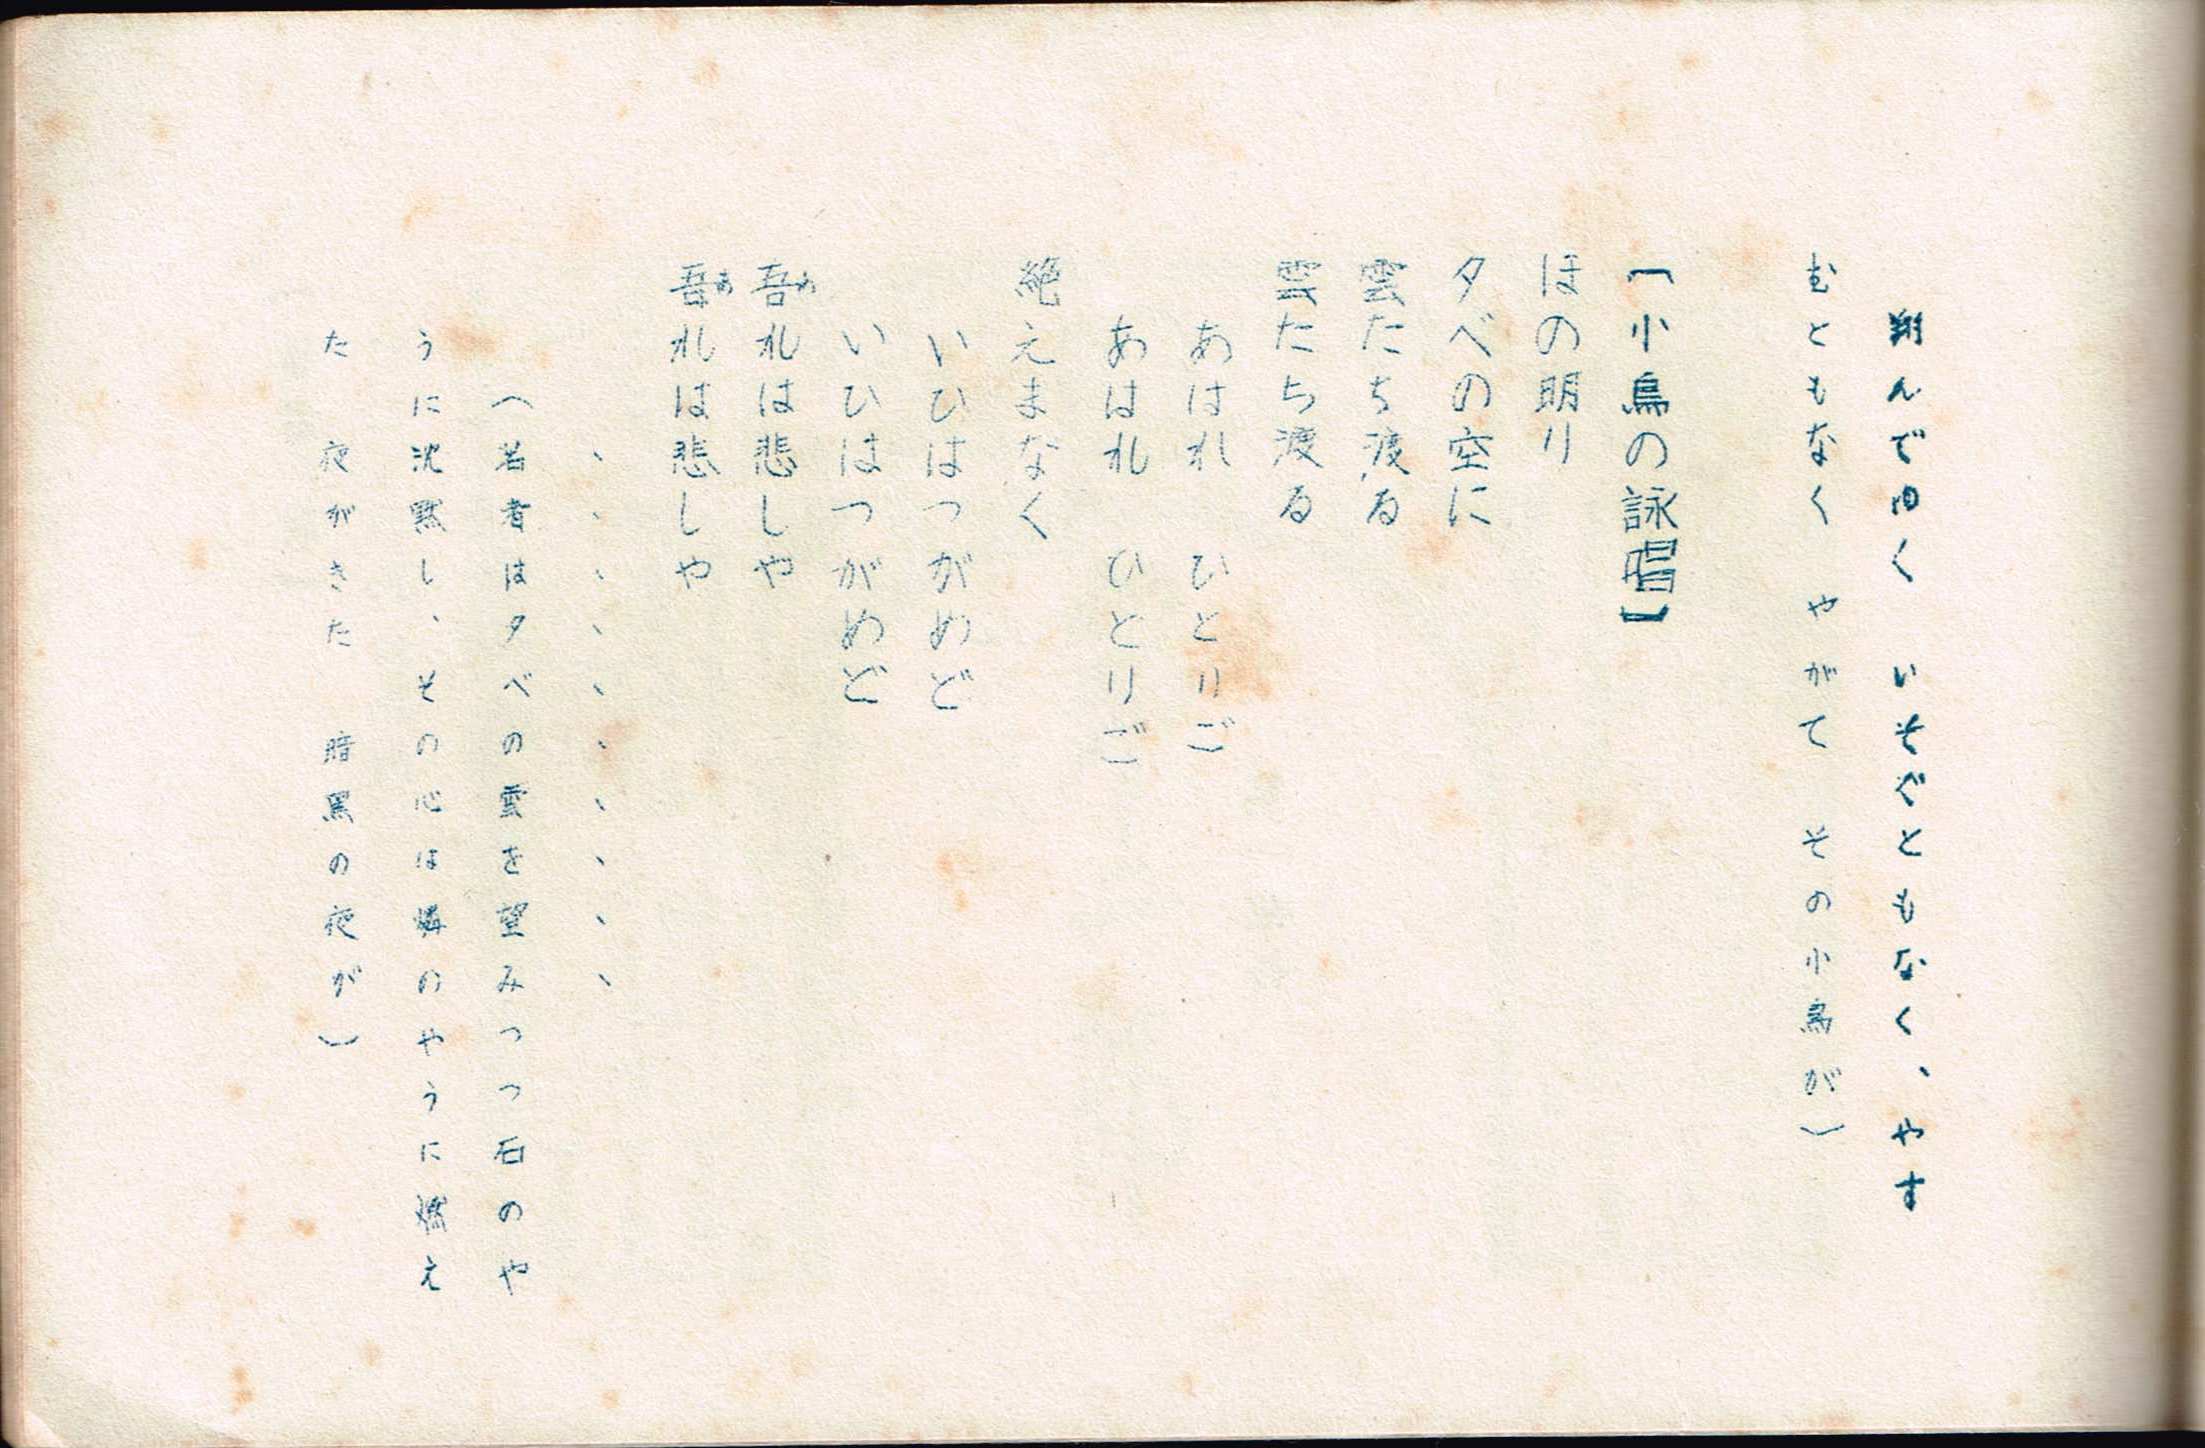 翔んでゆく　いそぐともなく、やす
むともなく　やがて　その小鳥が）
【小鳥の詠唱】
ほの明り
夕べの空に
雲たち渡る
雲たち渡る
あはれ　ひとりご
あはれ　ひとりご
絶えまなく
いひはつがめど
いひはつがめど
吾れは悲しや
吾れは悲しや
、、、、、、、、、、
（若者は夕べの雲を望みつつ石のや
うに沈黙し、その心は燐のやうに燃え
た　夜がきた　暗黒の夜が）